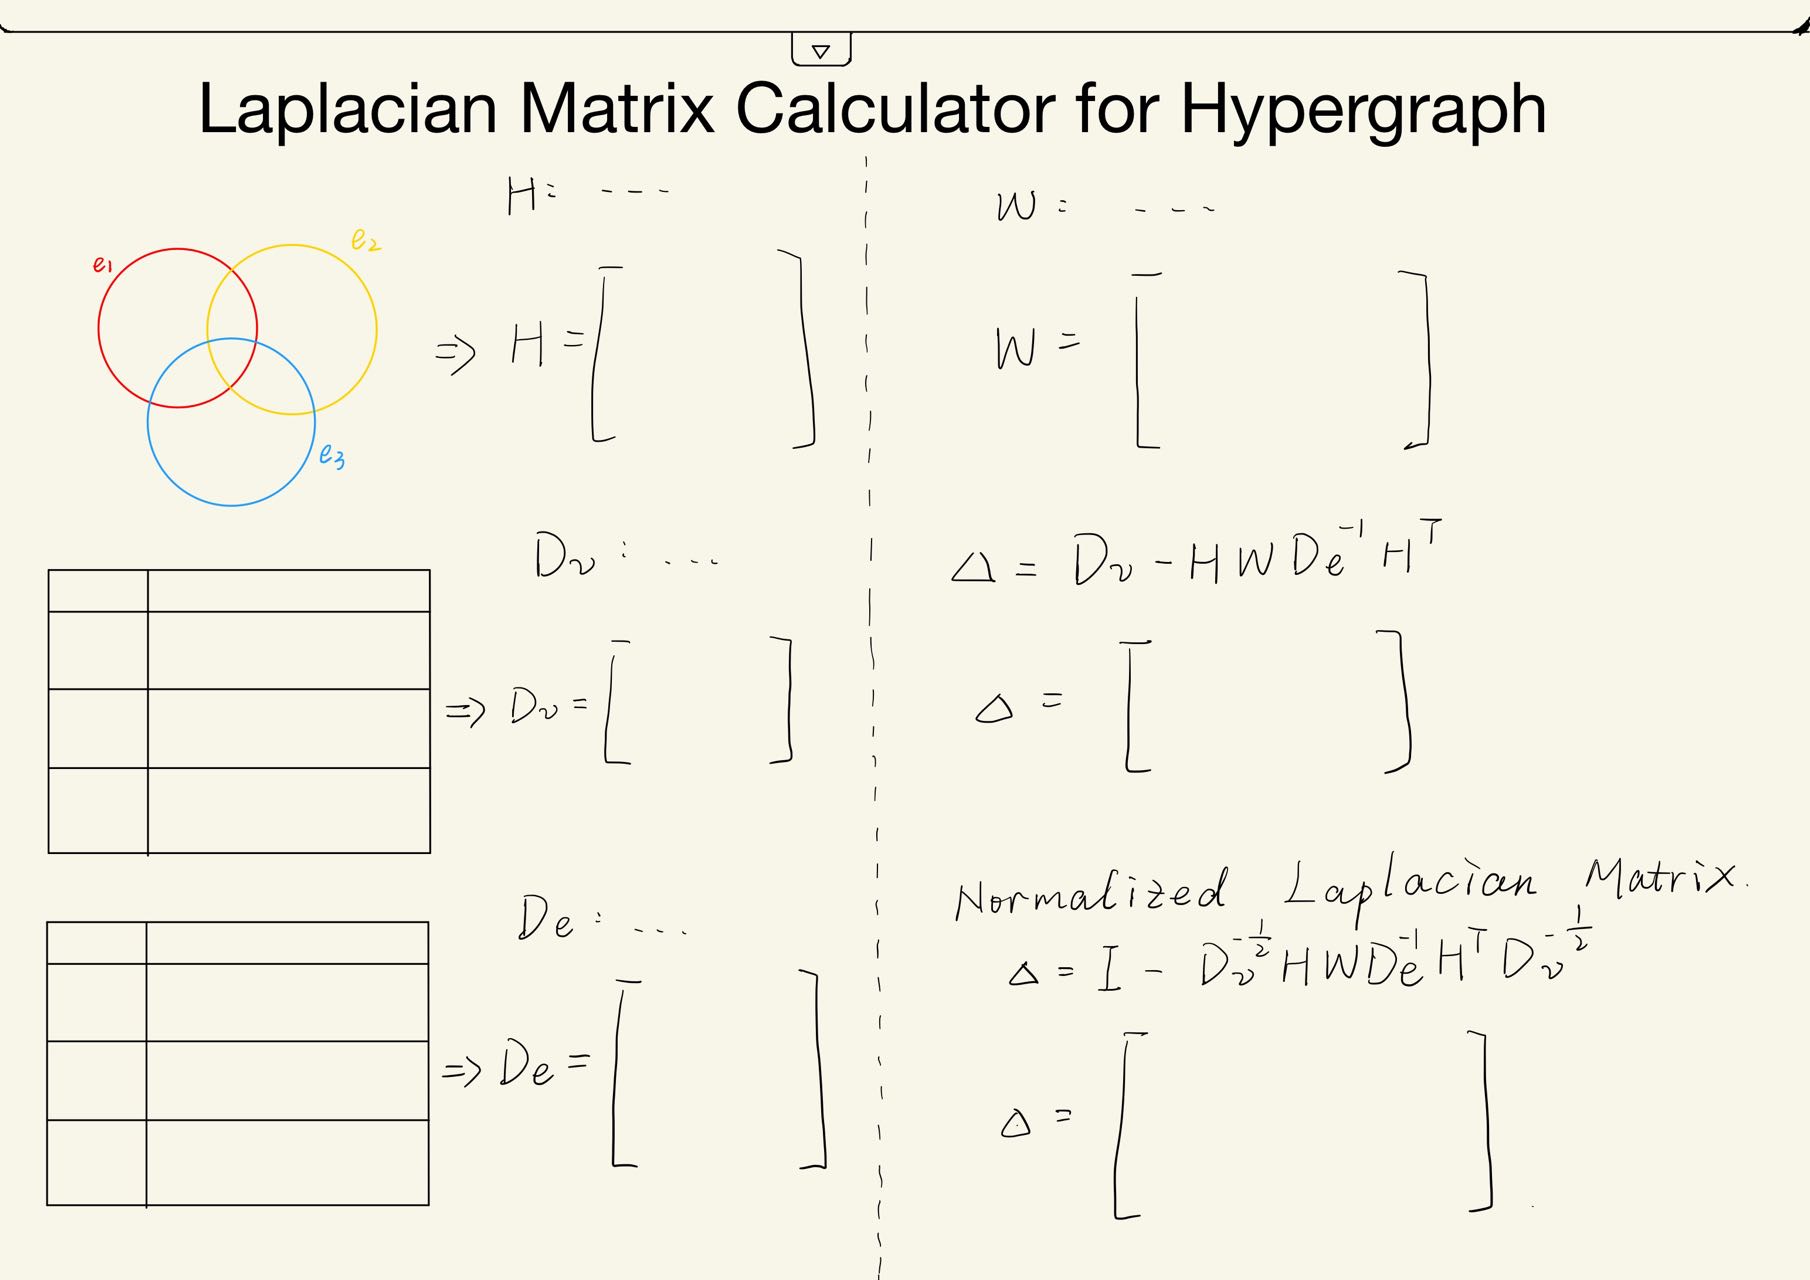 Laplacian Matrix Calculator for Hypergraph
H: ---
e1
e2
e3
⇒ H = [ ]
Dv : ...
⇒ Dv = [ ]
De : ...
⇒ De = [ ]
W : ---
W = [ ]
Δ = Dv - H W De^-1 H^T
Δ = [ ]
Normalized Laplacian Matrix.
Δ = I - Dv^-1/2 H W De^-1 H^T Dv^-1/2
Δ = [ ]